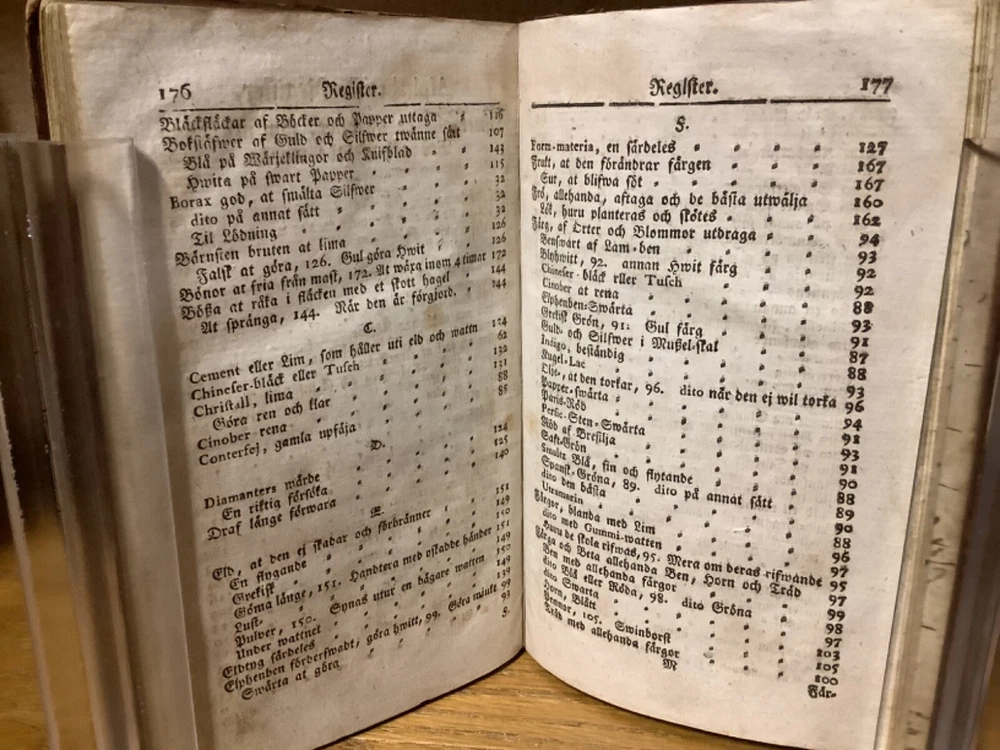 176 Register.
Bläckfläckar af Böcker och Papper uttaga 116
Bokstäfwer af Guld och Silfwer twänne sätt 107
Blå på Wärjeklingor och Knifblad 143
Hwita på swart Papper 115
Borax god, at smälta Silfwer 32
dito på annat sätt 32
Til Lödning 32
Bärnsten bruten at lima 126
Falsk at göra, 126. Gul göra Hwit 126
Bönor at fria från mask, 172. At wäxa inom 4 timar 172
Bößa at råka i fläcken med et skott hagel 144
At spränga, 144. När den är förgjord. 144
C.
Cement eller Lim, som håller uti eld och wattn 124
Chineser-bläck eller Tusch 62
Christall, lima 132
Göra ren och klar 131
Cinober rena 88
Conterfej, gamla upfäja 85
D.
Diamanters wärde 124
En riktig försöka 125
Draf länge förwara 140
E.
Eld, at den ej skadar och förbränner 151
En flygande 149
Grekisk 150
Göma länge, 151. Handtera med oskadde händer 151
Lust- 149
Pulver, 150. Synas utur en bägare watten 150
Under wattnet 149
Eldtyg särdeles 139
Elphenben förderfwadt, göra hwitt, 99. Göra miukt 99
Swärta at göra 93
F.
Register. 177
F.
Form-materia, en särdeles 127
Frukt, at den förändrar färgen 167
Sur, at blifwa söt 167
Frö, allehanda, aftaga och de bästa utwälja 160
Lök, huru planteras och skötes 162
Färg, af Örter och Blommor utdraga 94
Benswart af Lam-ben 93
Blyhwitt, 92. annan Hwit färg 92
Chineser-bläck eller Tusch 92
Cinober at rena 88
Elphenben-Swärta 93
Grekisk Grön, 91. Gul färg 91
Guld- och Silfwer i Mußel-skal 87
Indigo, beständig 88
Kugel-Lac 93
Olje-, at den torkar, 96. dito när den ej wil torka 96
Papper-swärta 94
Paris-Röd 91
Persic-Sten-Swärta 93
Röd af Bresilja 91
Saft-Grön 90
Smultz Blå, fin och flytande 88
Spansk-Gröna, 89. dito på annat sätt 89
dito den bästa 90
Utramarin 88
Färgor, blanda med Lim 96
dito med Gummi-watten 97
Huru de skola rifwas, 95. Mera om deras rifwande 95
Färga och Beta allehanda Ben, Horn och Träd 97
Ben med allehanda färgor 99
dito Blå eller Röda, 98. dito Gröna 98
dito Swarta 97
Horn, Blått 103
Pennor, 105. Swinborst 105
Träd med allehanda färgor 100
M
Fär-